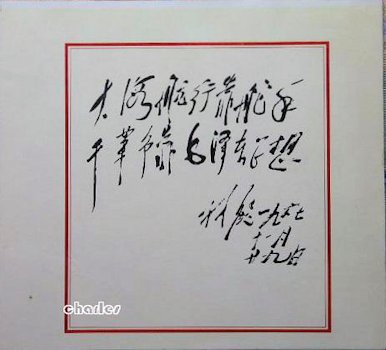 大海航行靠舵手
干革命靠毛泽东思想
林彪一九六七
十一月
廿九日
charles